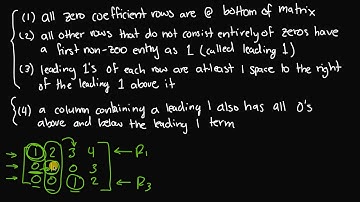 (1) all zero coefficient rows are @ bottom of matrix
(2) all other rows that do not consist entirely of zeros have
a first non-zoo entry as 1 (called leading 1)
(3) leading 1's of each row are atleast 1 space to the right
of the leading 1 above it
(4) a column containing a leading 1 also has all 0's
above and below the leading 1 term
1 2 3 4 ← R₁
0 0 3
0 0 1 2 ← R₃